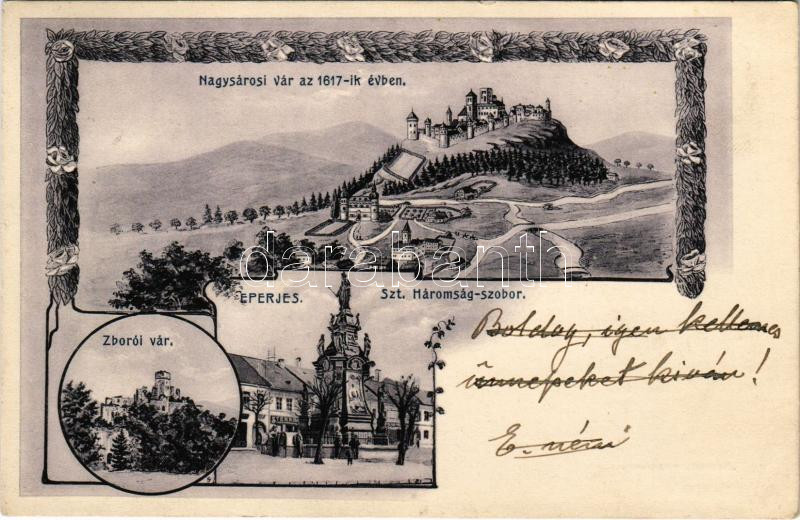 Nagysárosi vár az 1617-ik évben.
darabanth
EPERJES. Szt. Háromság-szobor.
Zborói vár.
Boldog, igen kellemes
ünnepeket kiván!
E. néni